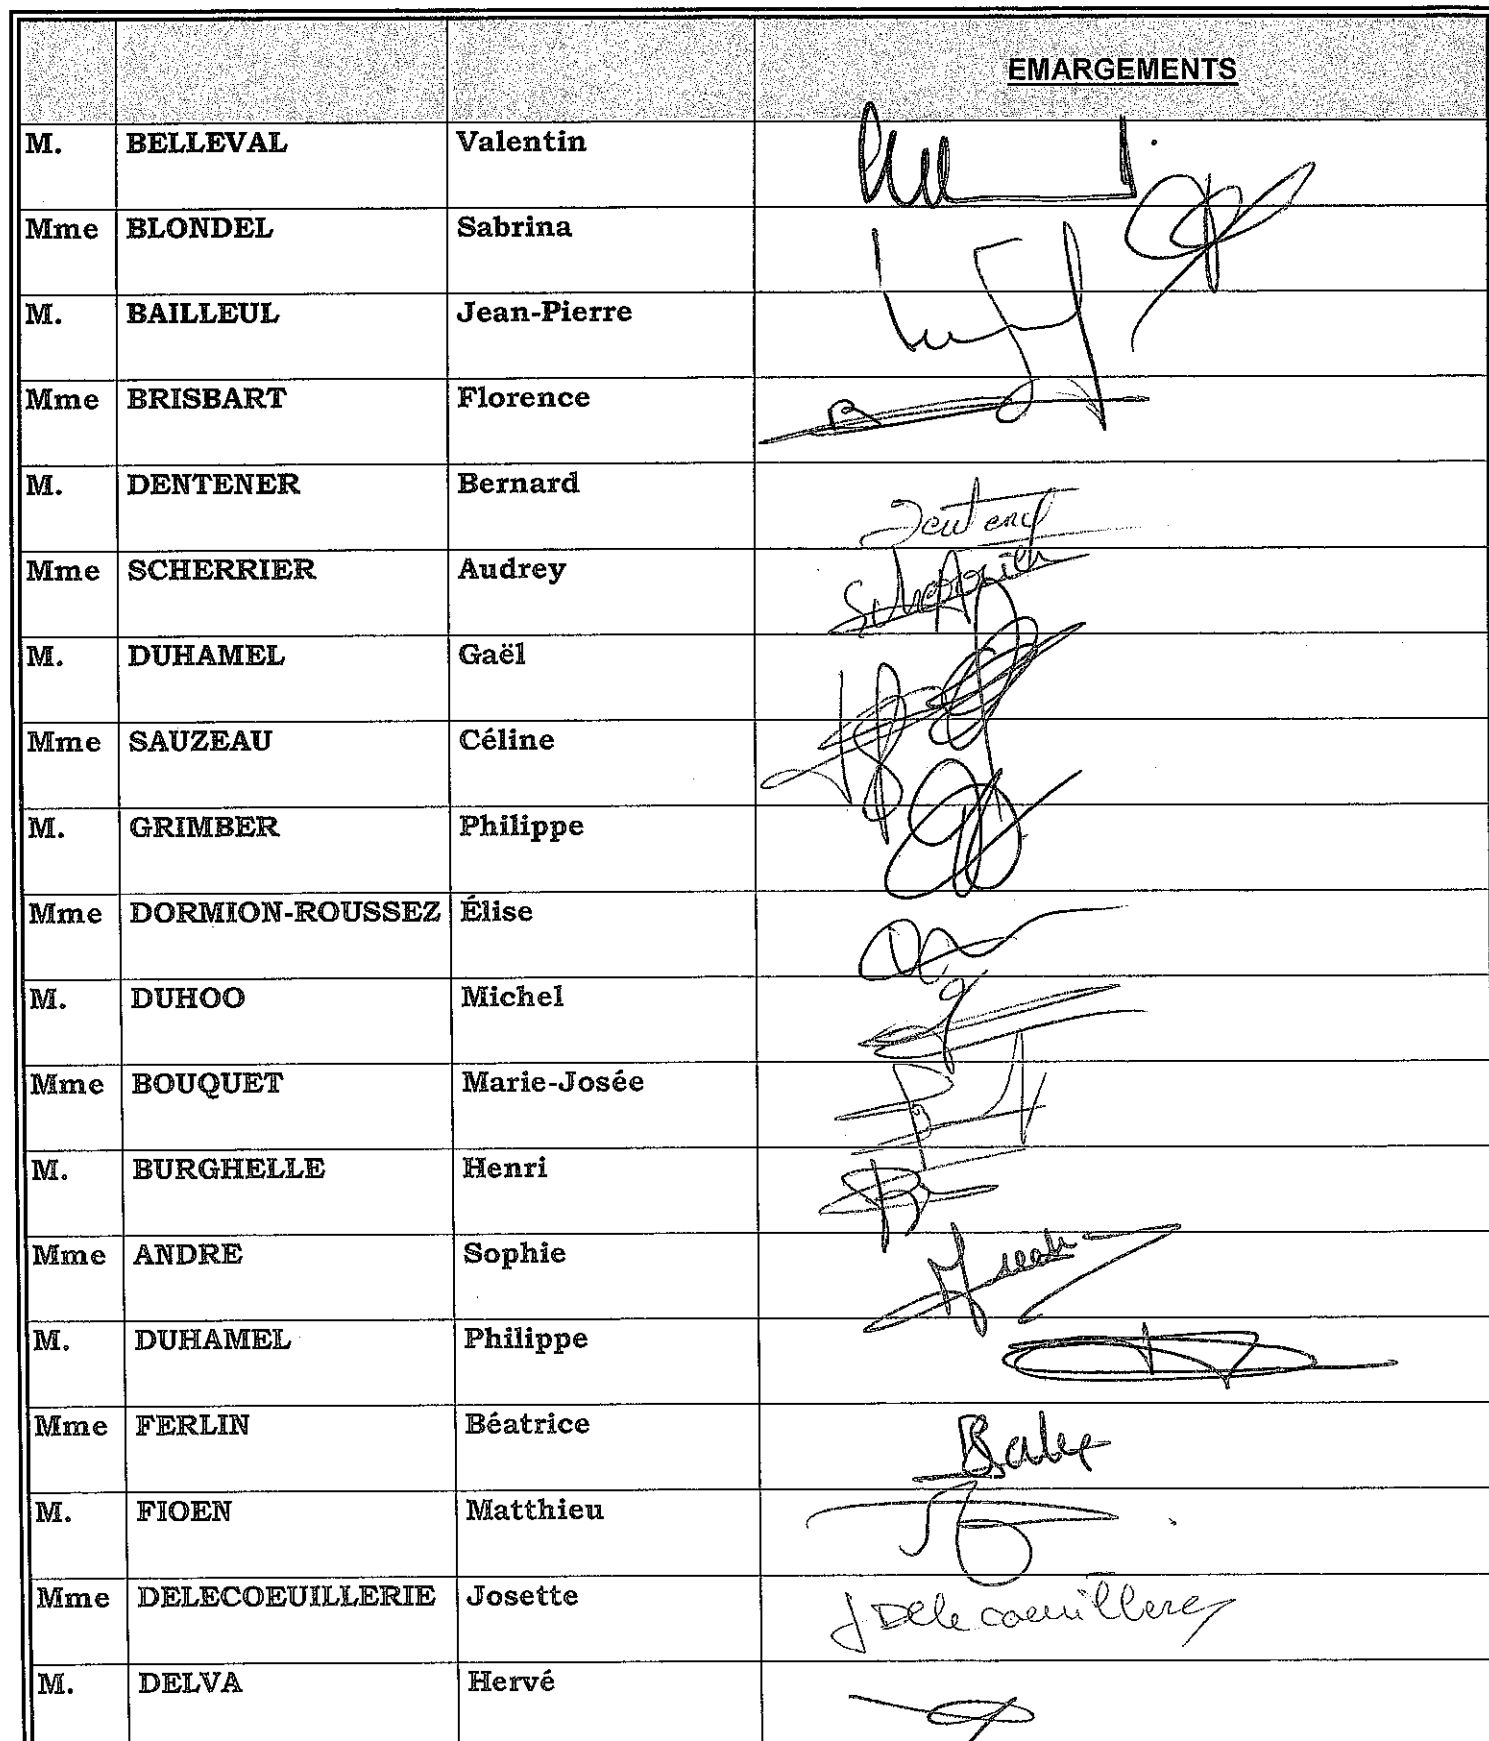 EMARGEMENTS
M. BELLEVAL Valentin
Mme BLONDEL Sabrina
M. BAILLEUL Jean-Pierre
Mme BRISBART Florence
M. DENTENER Bernard
Mme SCHERRIER Audrey
M. DUHAMEL Gaël
Mme SAUZEAU Céline
M. GRIMBER Philippe
Mme DORMION-ROUSSEZ Élise
M. DUHOO Michel
Mme BOUQUET Marie-Josée
M. BURGHELLE Henri
Mme ANDRE Sophie
M. DUHAMEL Philippe
Mme FERLIN Béatrice
M. FIOEN Matthieu
Mme DELECOEUILLERIE Josette
M. DELVA Hervé